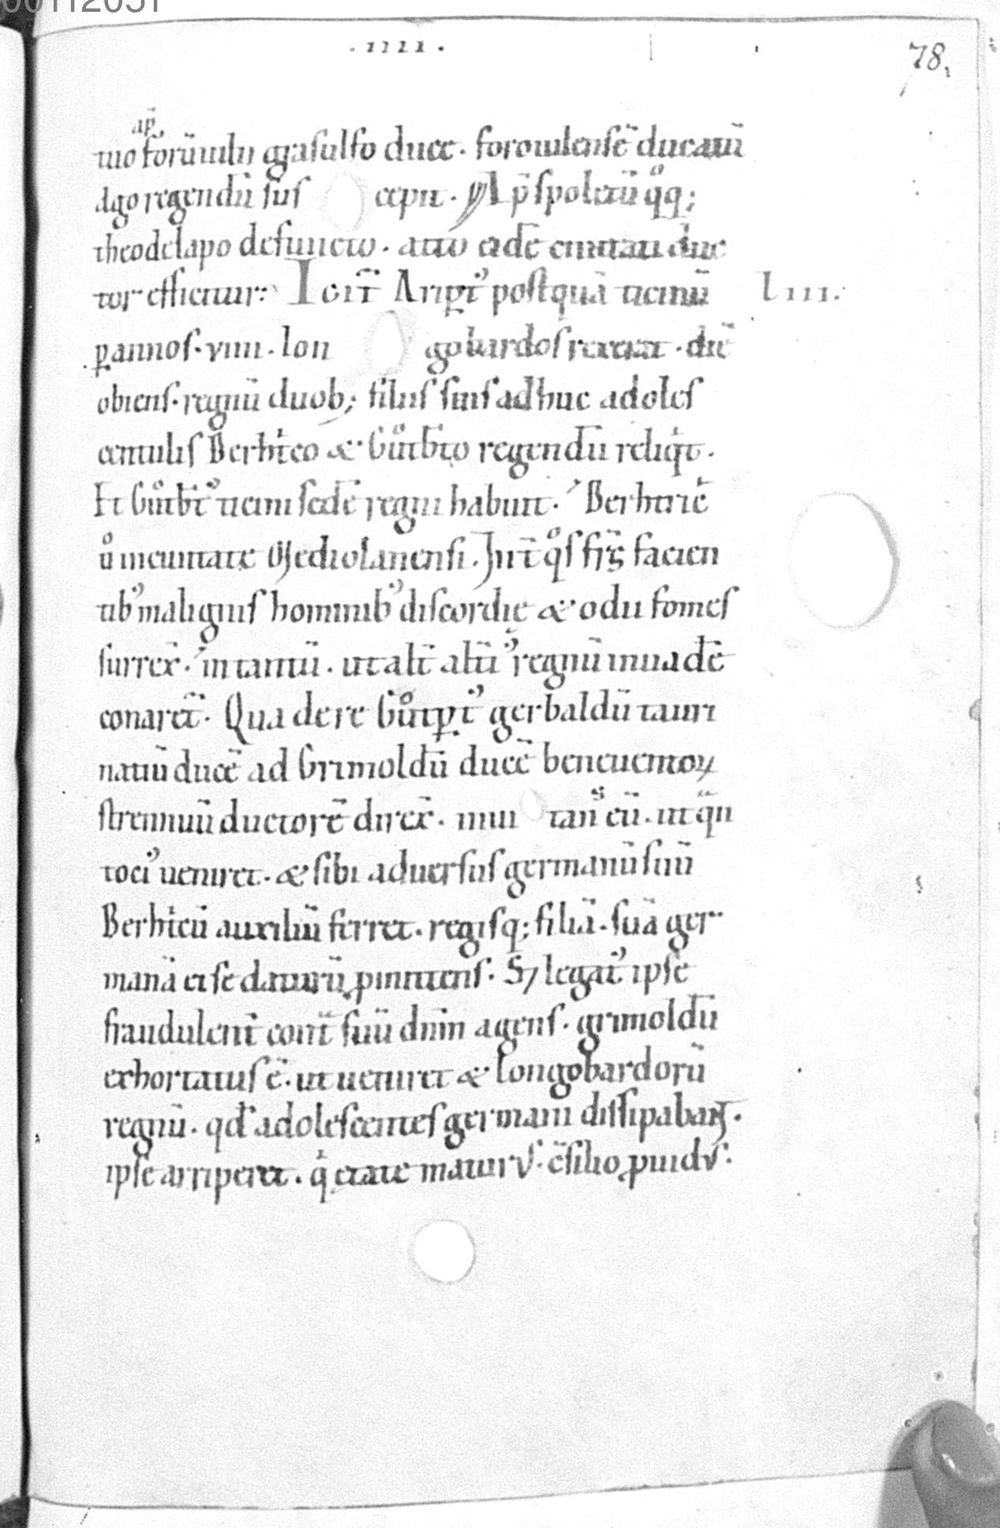 00112051
. IIII .
78,
ap̄
tuo forūiulii grasulfo duce. foroiulensē ducatū
ago regendū sus cepit. Ap̄ spoletū q̊q;
theodelapo defuncto. atto eidē ciuitati duc
tor efficitur: IGIT̄ Aript᾽ postquā ticinū
LIII.
ꝑ annos. viiii. lon gobardos rexerat. diē
obiens. regnū duob; filiis suis adhuc adoles
centulis Berhteo & Gůtbto regendū reliqt.
Et Gůtbt᾽ ticini sedē regni habuit. Berhtric̄
ů in ciuitate Mediolanensi. Int̄ q̊s frs̄ facien
tib᾽ malignis hominib᾽ discordię & odii fomes
surrex̄. in tantū. ut alt̄ altī᾽ regnū inuadē
conaret̄. Qua de re Gůtꝑt᾽ gerbaldū tauri
natiū ducē ad Grimoldū ducē beneuentoꝝ
strennuū ductorē direx̄. inui tans̄ eū. ut q̄n
toci᾽ ueniret. & sibi aduersus germanū suū
Berhtcū auxiliū ferret. regisq; filiā. suā ger
manā ei se daturū ꝓmittens. Sꝫ legat᾽ ipse
fraudulent̄ cont̄ suū dnm̄ agens. grimoldū
exhortatus ē. ut ueniret & Longobardorū
regnū. qđ adolescentes germani dissipabant.
ipse arriperet. q̇ etate matur᾽. c̄silio ꝓuid᾽.